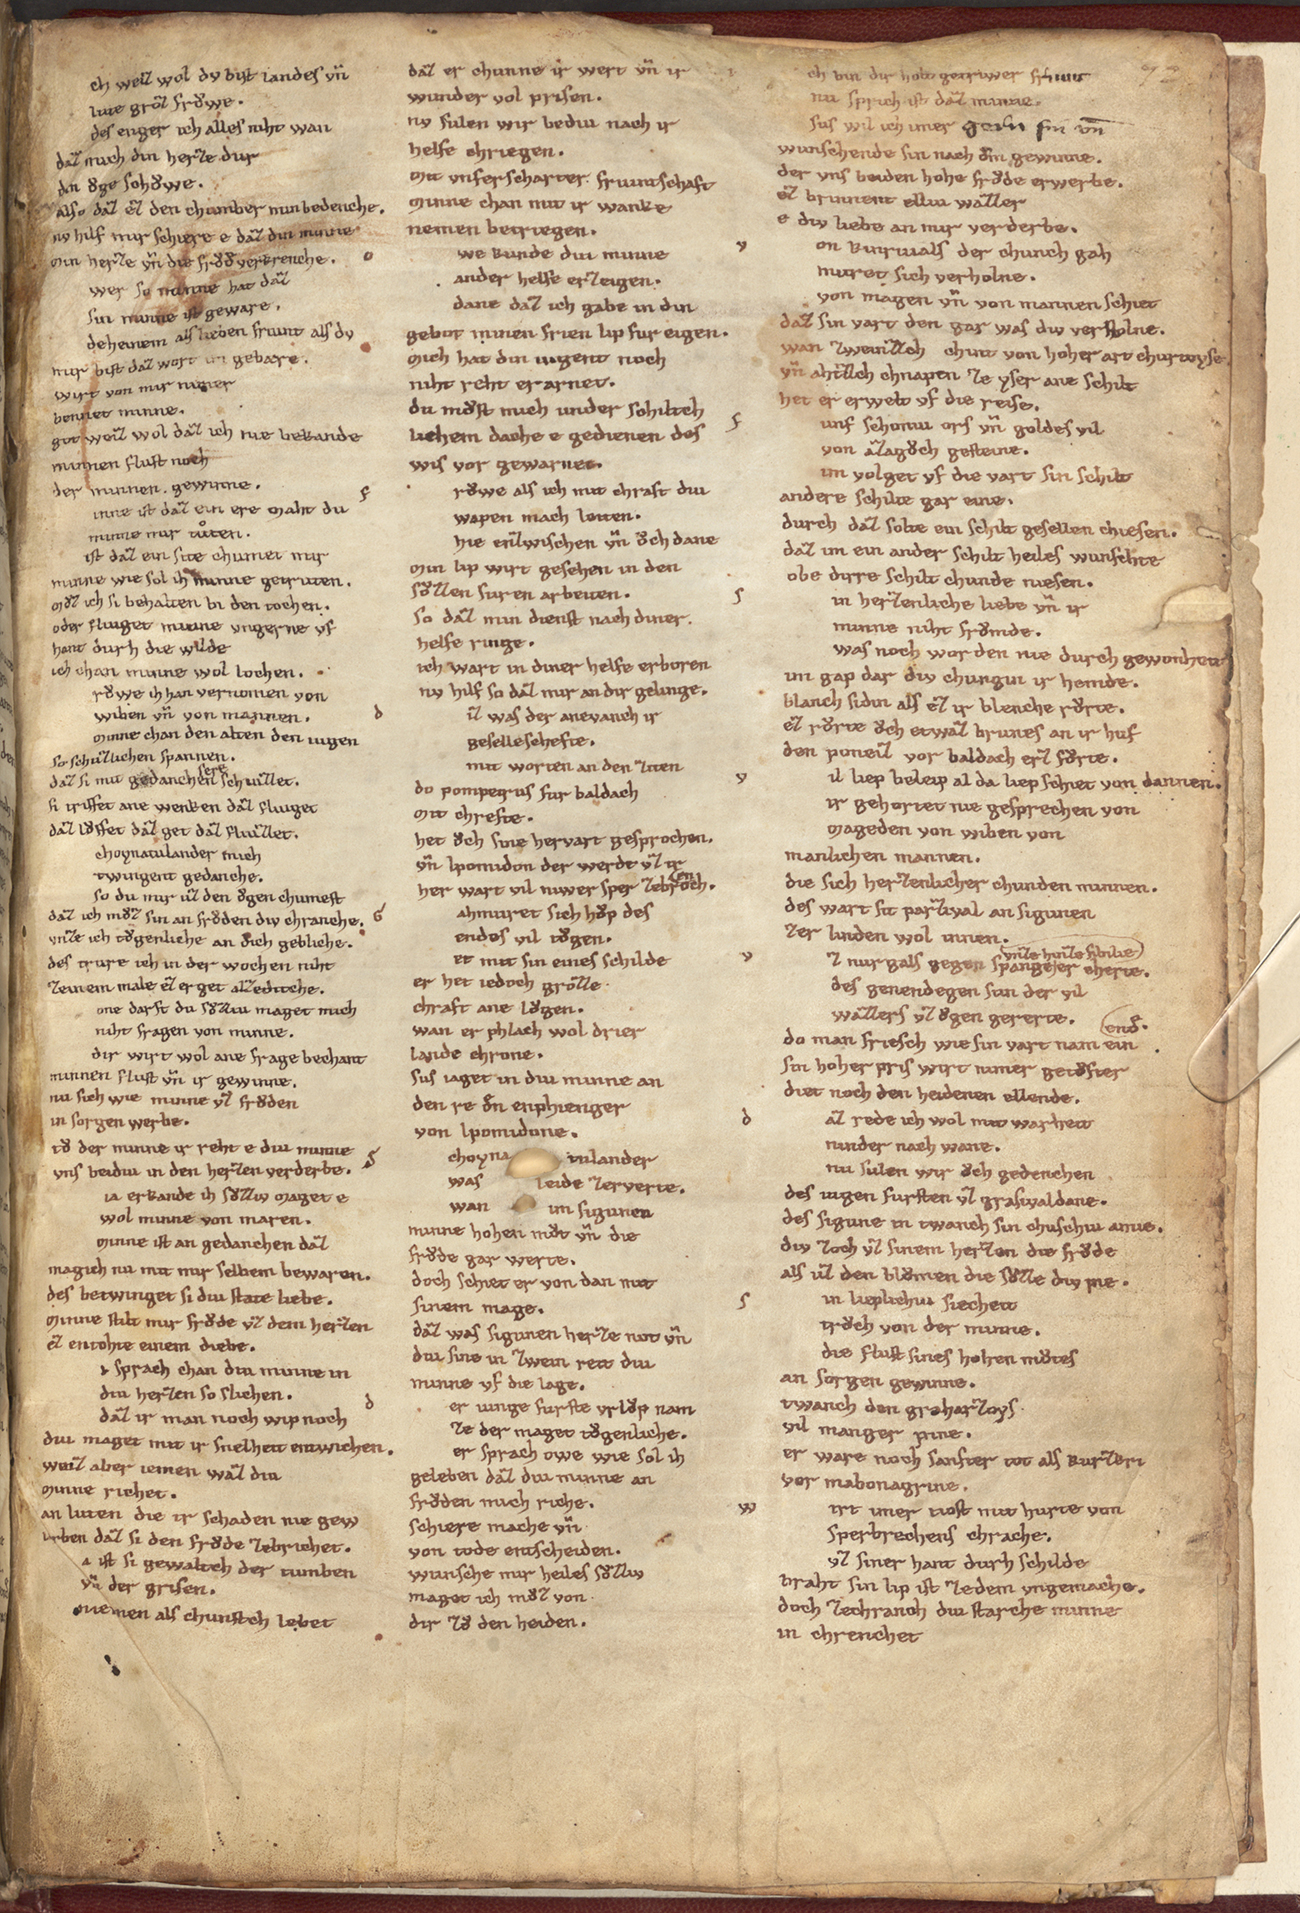 ch weiz wol dv bist landes vñ
lute groz frǒwe.
des enger ich alles niht wan
daz mich din herze dur
din ǒge schǒwe.
also daz ez den chumber min bedenche.
nv hilf mir schiere e daz din minne
min herze vñ die frǒde verkrenche.
wer so minne hat daz
sin minne ist geuare.
deheinem als lieben friunt als dv
mir bist daz wort un gebære.
wirt von mir nimer
bennet minne.
got weiz wol daz ich nie bekande
minnen flust noch
der minnen gewinne.
inne ist daz ein ere maht du
minne mir tůten.
ist daz ein site chumet mir
minne wie sol ih minne getruten.
mǒz ich si behalten bi den tochen.
oder fliuget minne vngerne vf
hant durh die wilde
ich chan minne wol lochen.
rǒwe ih han vernomen von
wiben vñ von mannen.
minne chan den alten den iungen
so schuzlichen spannen.
daz si mit gedanchen sere schuizet.
si triffet ane wenken daz fliuget
daz lǒffet daz get daz fliuzzet.
choynatulander mich
twingent gedanche.
so du mir uz den ǒgen chumest
daz ich mǒz sin an frǒden div chranche.
vnze ich tǒgenliche an dich gebliche.
des trure ich in der wochen niht
zeinem male ez er get alzediche.
one darft du sǒzziu maget mich
niht fragen von minne.
dir wirt wol ane frage bechant
minnen flust vñ ir gewinne.
nu sich wie minne vz frǒden
in sorgen werbe.
tǒ der minne ir reht e diu minne
vns beidiu in den herzen verderbe.
ia erkande ih sǒzziv maget e
wol minne von maren.
minne ist an gedanchen daz
mag ich nu mit mir selbem bewaren.
des betwinget si diu state liebe.
minne stilt mir frǒde vz dem herzen
ez entohte einem diebe.
sprach chan diu minne in
diu herzen so slichen.
daz ir man noch wip noch
diu maget mit ir snelheit entwichen.
weiz aber iemen waz diu
minne richet.
an luten die ir schaden nie gew
urben daz si den frǒde zebrichet.
a ist si gewaltch der tumben
vñ der grisen.
niemen als chunstch lebet
daz er chunne ir wert vñ ir
wunder vol prisen.
nv sulen wir bediu nach ir
helfe chriegen.
mit vnserscharter friuntschaft
minne chan mit ir wanke
nemen betriegen.
we kunde diu minne
ander helfe erzeigen.
dane daz ich gabe in din
gebot minen frien lip fur eigen.
mich hat din iugent noch
niht reht erarnet.
du mǒst mich under schiltch
lichem dache e gedienen des
wis vor gewarnet.
rǒwe als ich mit chraft diu
wapen mach leiten.
hie enzwischen vñ ǒch dane
min lip wirt gesehen in den
sǒzzen suren arbeiten.
so daz min dienst nach diner
helfe ringe.
ich wart in diner helfe erboren
nv hilf so daz mir an dir gelinge.
iz was der anevanch ir
geselleschefte.
mit worten an den ziten
do pompeirus fur baldach
mit chrefte.
het ǒch sine hervart gesprochen.
vñ Ipomidon der werde vz ir
her wart vil niwer sper zebrochen.
ahmuret sich hǒp des
endes vil tǒgen.
et mit sin eines schilde
er het iedoch grozze
chraft ane lǒgen.
wan er phlach wol drier
lande chrone.
sus iaget in diu minne an
den re ǒn enphienger
von Ipomidone.
choyna tulander
was leide zerverte.
wan im sigunen
minne hohen mǒt vñ die
frǒde gar werte.
doch schiet er von dan mit
sinem mage.
daz was sigunen herze not vñ
diu sine in zwein reit diu
minne vf die lage.
er iunge furste vrlǒp nam
ze der maget tǒgenliche.
er sprach owe wie sol ih
geleben daz diu minne an
frǒden mich riche.
schiere mache vñ
von tode entscheiden.
wunsche mir heiles sǒzziv
maget ich mǒz von
dir zǒ den heiden.
ch bin dir holt getriwer friunt
nu sprich ist daz minne.
sus wil ich imer gern sin vñ
wunschende sin nach dem gewinne.
der vns beiden hohe frǒde erwerbe.
ez brinnent elliu wazzer
e div liebe an mir verderbe.
on kunwals der chunch gah
muret sich verholne.
von magen vñ von mannen schiet
daz sin vart den gar was div verstolne.
wan zweinzzch chint von hoher art churtoyse
vñ ahtzzch chnapen ze yser ane schilt
het er erwelt vf die reise.
unf schoniu ors vñ goldes vil
von azagǒch gesteine.
im volget vf die vart sin schilt
andere schilte gar eine.
durch daz solte ein schilt gesellen chiesen.
daz im ein ander schilt heiles wunschte
obe dirre schilt chunde niesen.
in herzenliche liebe vñ ir
minne niht frǒmde.
was noch worden nie durch gewonheit
im gap dar div chungin ir hemde.
blanch sidin als ez ir blenche rǒrte.
ez rǒrte ǒch etwaz brunes an ir huf
den poneiz vor baldach erz fǒrte.
il liep beleip al da liep schiet von dannen.
ir gehortet nie gesprechen von
mageden von wiben von
manlichen mannen.
die sich herzenlicher chunden minnen.
des wart sit parzival an sigunen
zer linden wol innen.
vnze hinze sibilie
z nurgals gegen spangejer cherte.
des genendegen sun der vil
wazzers vz ǒgen gererte.
end.
do man friesch wie sin vart nam ein
sin hoher pris wirt nimer getǒfter
diet noch den heidenen ellende.
az rede ich wol mit warheit
ninder nach wane.
nu sulen wir ǒch gedenchen
des iungen fursten vz grasivaldane.
des sigune in twanch sin chuschiu amie.
div zoch vz sinem herzen die frǒde
als uz den blǒmen die sǒzze div pie.
in lieplichiu siecheit
trǒch von der minne.
die flust sines hohen mǒtes
an sorgen gewinne.
twanch den graharzoys
vil manger pine.
er ware noch sanfter tot als kurzkri
vor mabonagrine.
irt imer tiost mit hurte von
sperbrechens chrache.
vz siner hant durh schilde
braht sin lip ist ze dem vngemache.
doch zechranch diu starche minne
in chrenchet